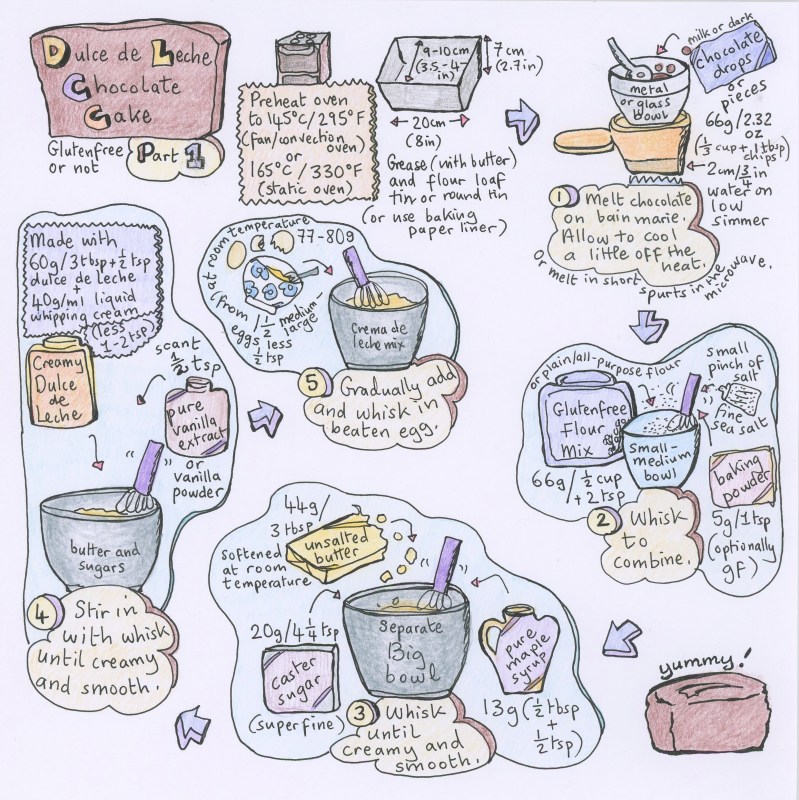 Dulce de Leche
Chocolate
Cake
Glutenfree
or not
Part 1
Preheat oven
to 145°C/295°F
(fan/convection
oven)
or
165°C/330°F
(static oven)
9-10cm
(3.5-4-
in)
7cm
(2.7in)
20cm
(8in)
Grease (with butter)
and flour loaf
tin or round tin
(or use baking
paper liner)
milk or dark
Chocolate
drops
or
pieces
66g/2.32
oz
(1/3 cup + 1 tbsp
chips)
metal
or glass
bowl
2cm/3/4 in
water on
low
simmer
1
Melt chocolate
on bain marie.
Allow to cool
a little off the
heat.
Or melt in short spurts in the microwave.
or plain/all-purpose flour
Glutenfree
Flour
Mix
66g/1/2 cup
+ 2 tsp
small
pinch of
salt
fine
sea salt
small-
medium
bowl
baking
powder
5g/1tsp
(optionally
gf)
2
Whisk
to
combine.
44g/
3 tbsp
unsalted
butter
softened
at room
temperature
20g/4 1/4 tsp
caster
sugar
(superfine)
Separate
Big
bowl
pure
maple
syrup
13g (1/2 tbsp
+
1/2 tsp)
3
Whisk
until
creamy and
smooth.
Made with
60g/3tbsp+1/2tsp
dulce de leche
+
40g/ml liquid
whipping cream
(less
1-2tsp)
Creamy
Dulce
de
Leche
scant
1/2 tsp
pure
vanilla
extract
or
vanilla
powder
butter and
sugars
4
Stir in
with whisk
until creamy
and smooth.
at room temperature
77-80g
(from 1 1/2 medium-
large
eggs less
1/2 tsp
Crema de
leche mix
5
Gradually add
and whisk in
beaten egg.
yummy!